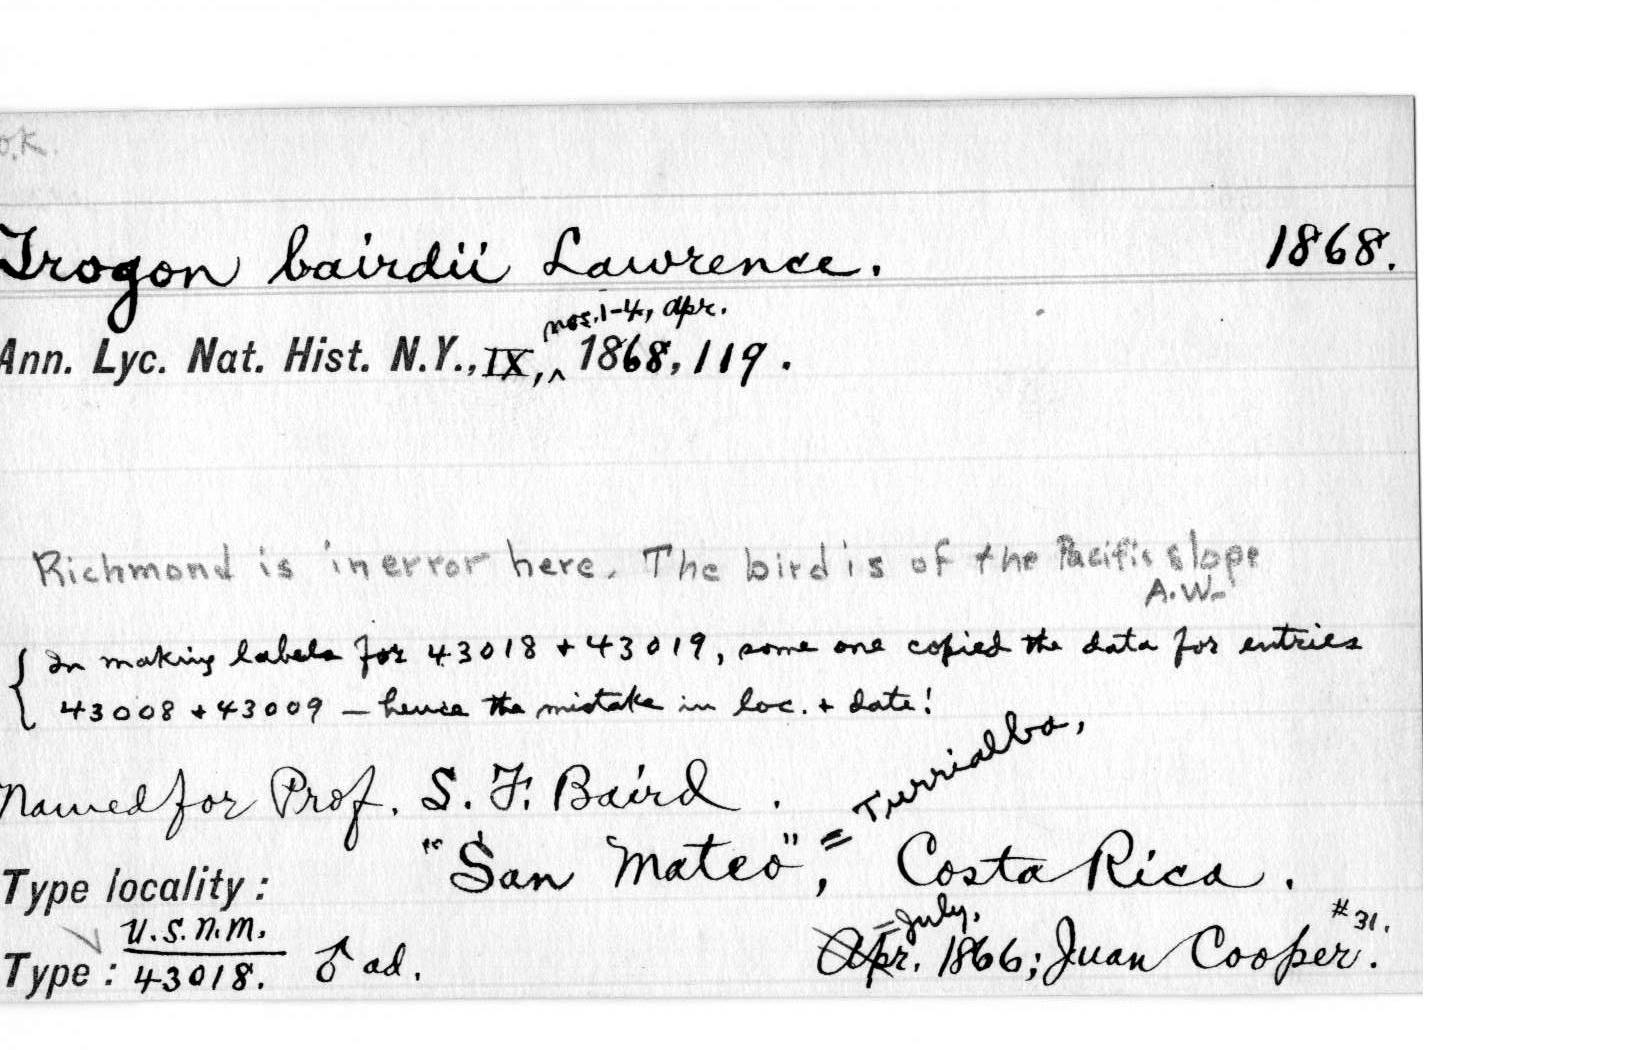 O.K.
Trogon bairdii Lawrence. 1868.
nos. 1-4, Apr.
Ann. Lyc. Nat. Hist. N.Y., IX, ^ 1868, 119.
Richmond is in error here. The bird is of the Pacific slope
A.W.
{ In making labels for 43018 + 43019, some one copied the data for entries
43008 + 43009 — hence the mistake in loc. + date!
Named for Prof. S. F. Baird.
= Turrialba,
Type locality: "San Mateo", Costa Rica.
U.S.N.M. = July, #31.
Type: 43018. ♂ ad. Apr. 1866; Juan Cooper.